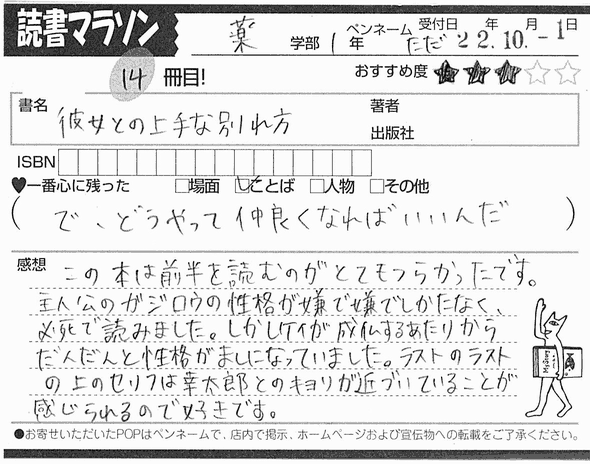 読書マラソン
薬 学部 1 年 ペンネーム ただ 受付日 22 年 10 月 -1 日
14 冊目! おすすめ度 ★★★☆☆
書名 彼女との上手な別れ方 著者
出版社
ISBN
♥一番心に残った □場面 ☑ことば □人物 □その他
( で、どうやって仲良くなればいいんだ )
感想 この本は前半を読むのがとてもつらかったです。
主人公のガジロウの性格が嫌で嫌でしかたなく、
必死で読みました。しかしケイが成仏するあたりから
だんだんと性格がましになっていました。ラストのラスト
の上のセリフは幸太郎とのキョリが近づいていることが
感じられるので好きです。
●お寄せいただいたPOPはペンネームで、店内で掲示、ホームページおよび宣伝物への転載をご了承ください。